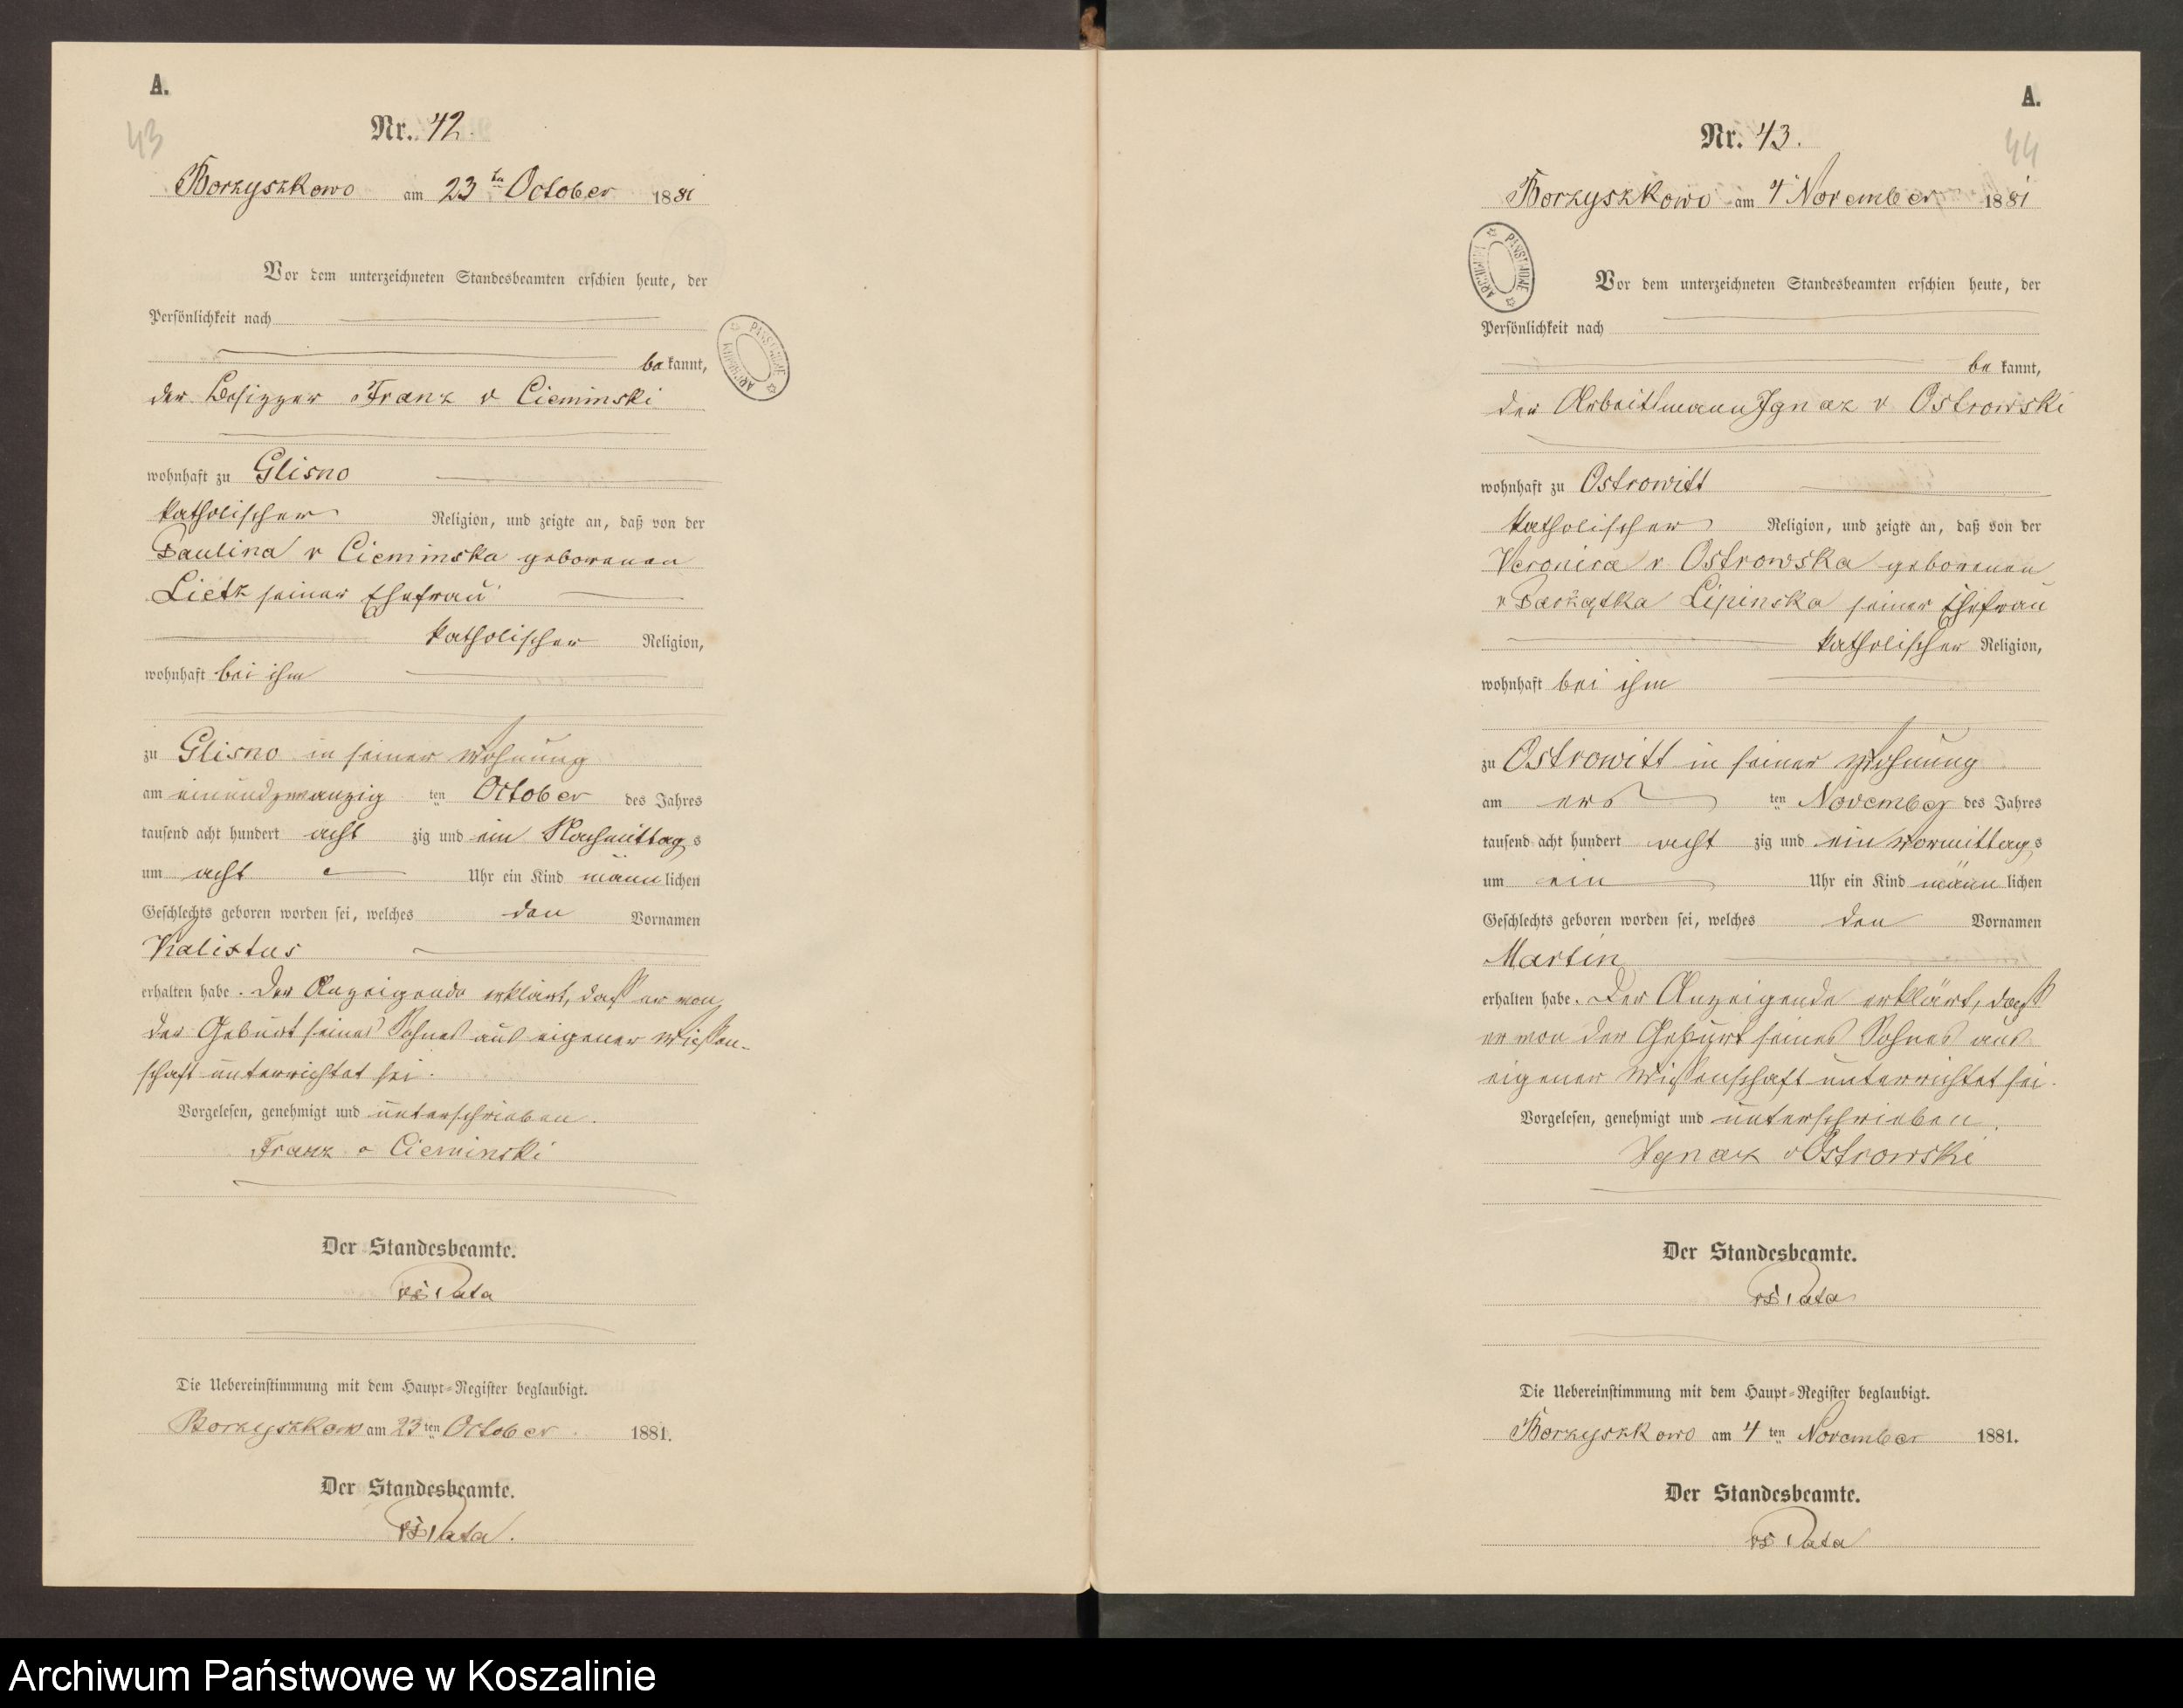 A.
43
Nr. 42.
Borzyszkowo am 23ten October 1881
Vor dem unterzeichneten Standesbeamten erschien heute, der
Persönlichkeit nach
bekannt,
der Besitzer Franz v Cieminski
wohnhaft zu Glisno
katholischer Religion, und zeigte an, daß von der
Paulina v Cieminska geborenen
Lietz seiner Ehefrau
katholischer Religion,
wohnhaft bei ihm
zu Glisno in seiner Wohnung
am einundzwanzig ten October des Jahres
tausend acht hundert acht zig und ein Nachmittags
um acht Uhr ein Kind männlichen
Geschlechts geboren worden sei, welches den Vornamen
Kalixtus
erhalten habe. Der Anzeigende erklärt, daß er von
der Geburt seines Sohnes aus eigener Wissen-
schaft unterrichtet sei.
Vorgelesen, genehmigt und unterschrieben.
Franz v Cieminski
Der Standesbeamte.
Pata
Die Uebereinstimmung mit dem Haupt-Register beglaubigt.
Borzyszkowo am 23ten October 1881.
Der Standesbeamte.
Pata.
A.
44
Nr. 43.
Borzyszkowo am 4 November 1881
ARCHIWUM PAŃSTWOWE
Vor dem unterzeichneten Standesbeamten erschien heute, der
Persönlichkeit nach
bekannt,
der Arbeitsmann Ignaz v Ostrowski
wohnhaft zu Ostrowitt
katholischer Religion, und zeigte an, daß von der
Veronica v Ostrowska geborenen
v Lipinska seiner Ehefrau
katholischer Religion,
wohnhaft bei ihm
zu Ostrowitt in seiner Wohnung
am ers ten November des Jahres
tausend acht hundert acht zig und ein Vormittags
um ein Uhr ein Kind männlichen
Geschlechts geboren worden sei, welches den Vornamen
Martin
erhalten habe. Der Anzeigende erklärt, daß
er von der Geburt seines Sohnes aus
eigener Wissenschaft unterrichtet sei.
Vorgelesen, genehmigt und unterschrieben.
Ignaz v Ostrowski
Der Standesbeamte.
Pata
Die Uebereinstimmung mit dem Haupt-Register beglaubigt.
Borzyszkowo am 4 ten November 1881.
Der Standesbeamte.
Pata
Archiwum Państwowe w Koszalinie